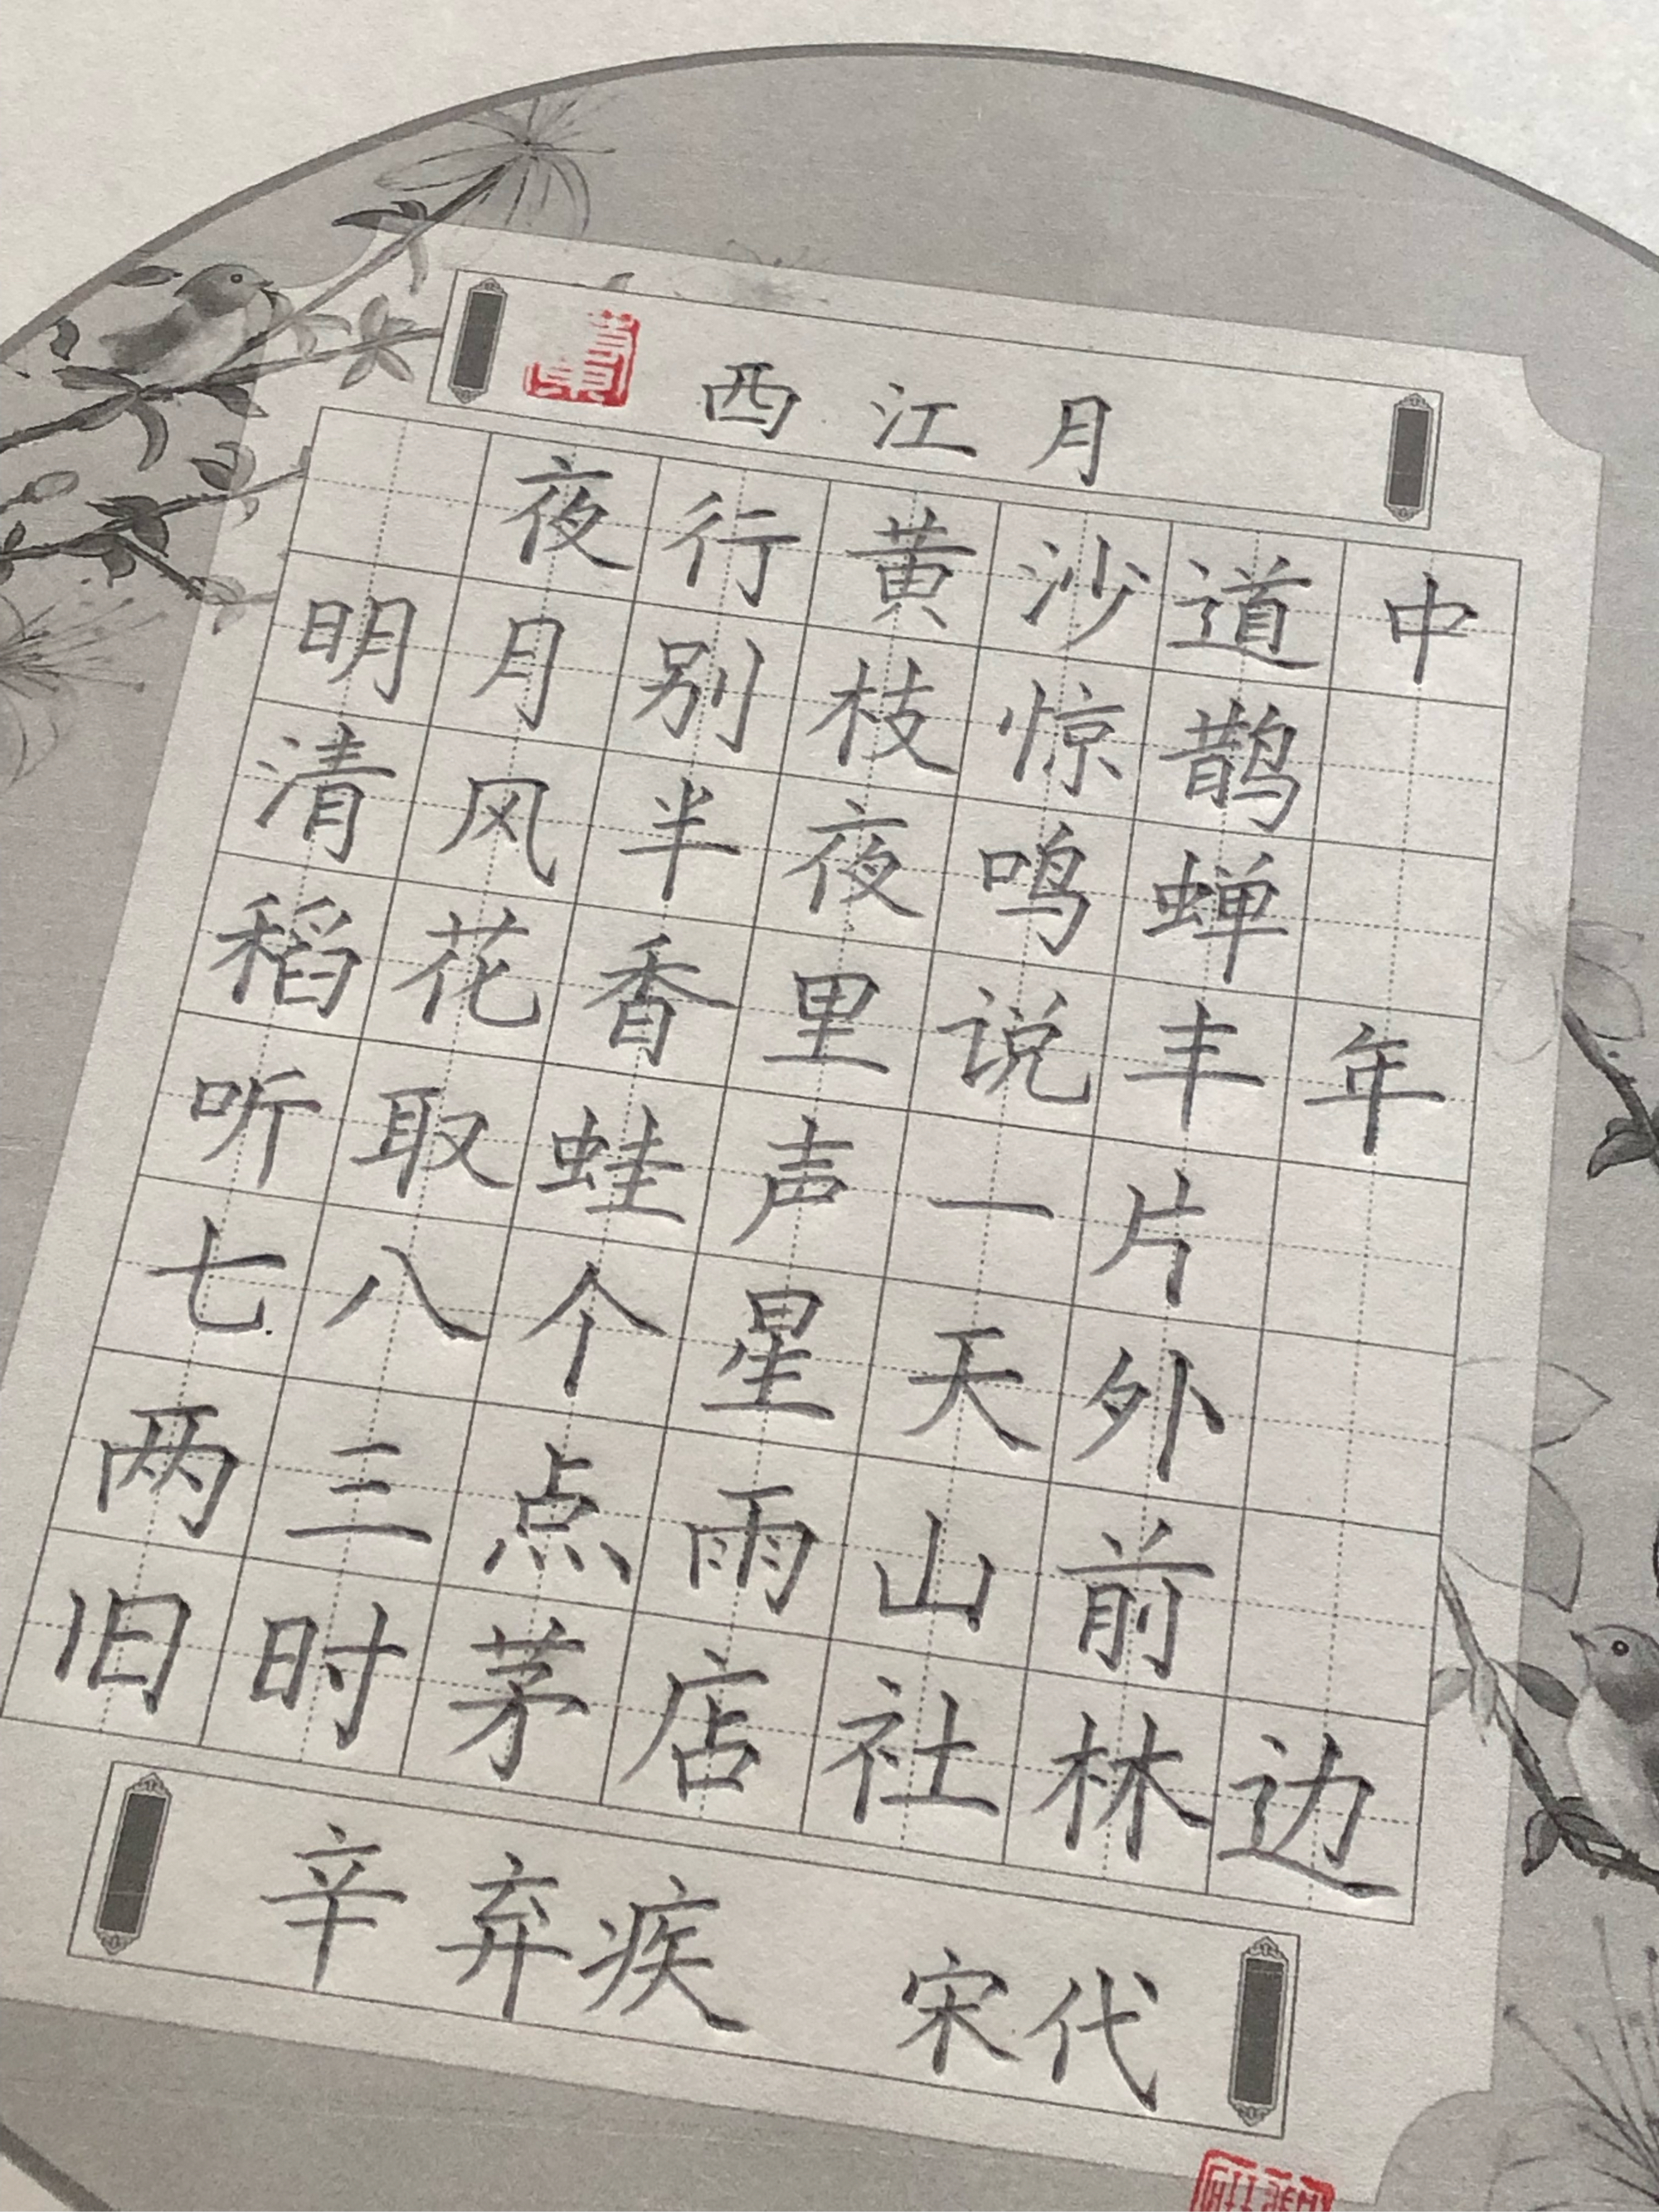 西江月
夜行黄沙道中
明月别枝惊鹊
清风半夜鸣蝉
稻花香里说丰年
听取蛙声一片
七八个星天外
两三点雨山前
旧时茅店社林边
辛弃疾 宋代